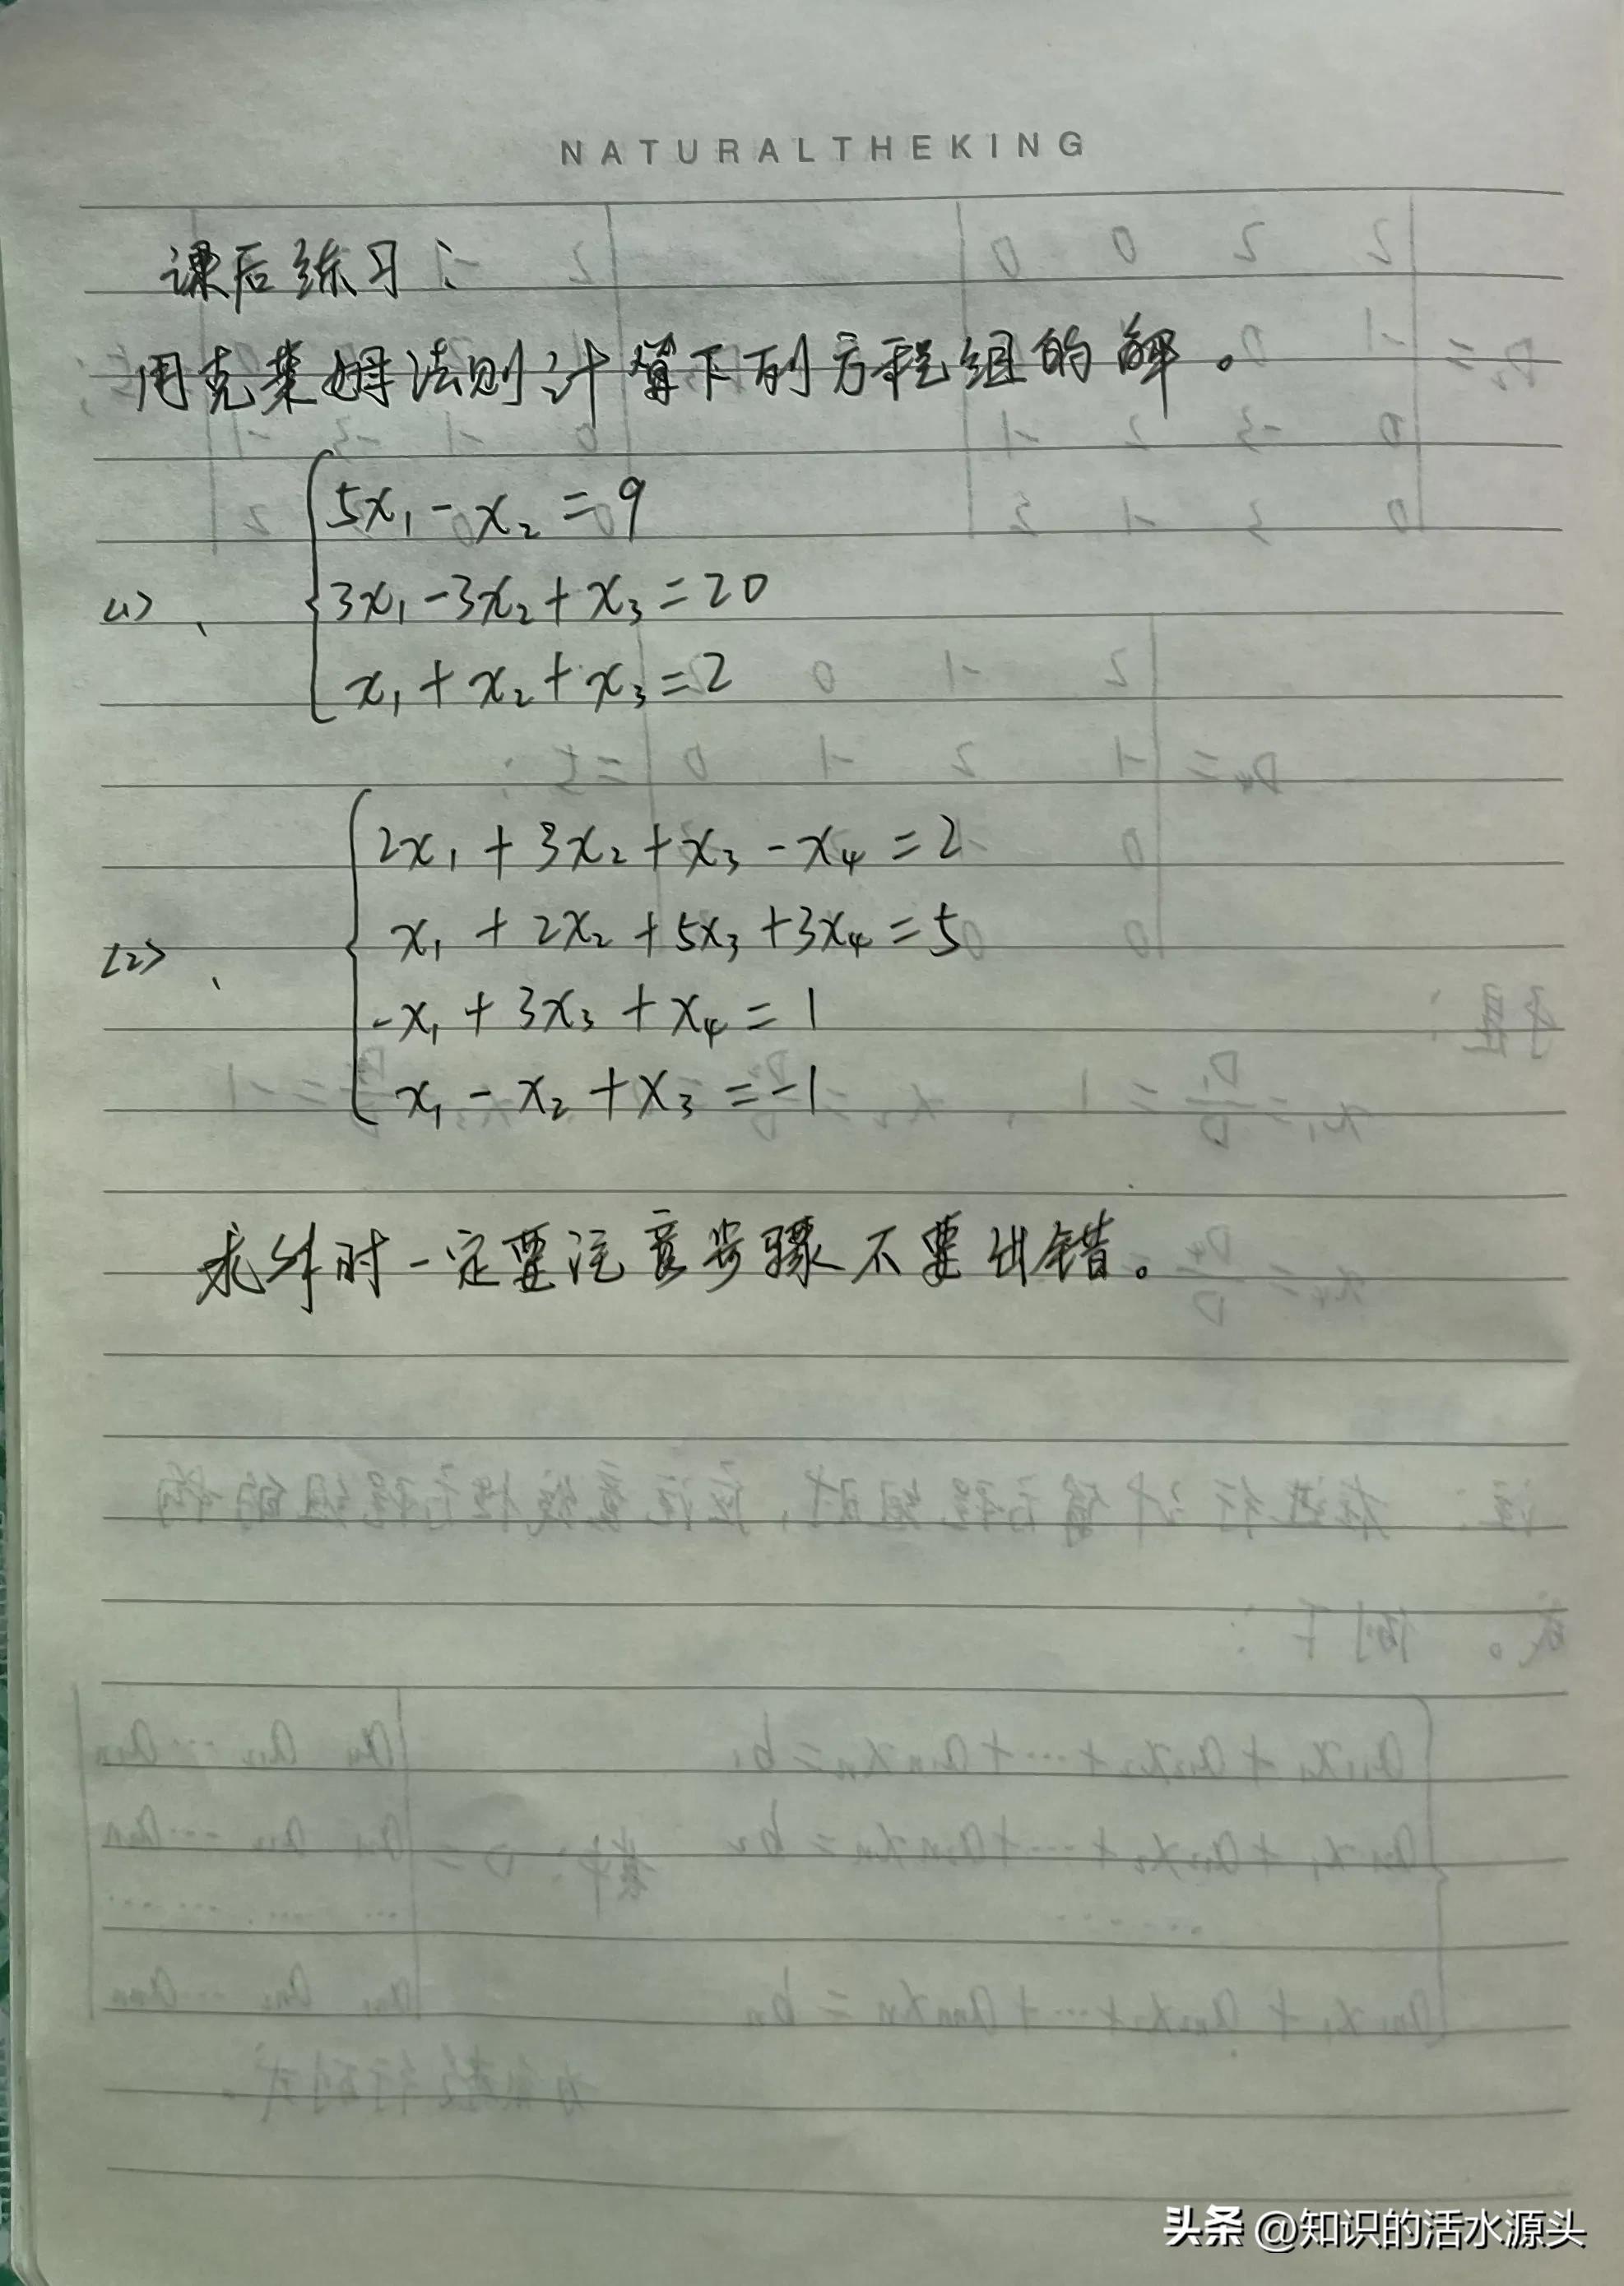 NATURALTHEKING
课后练习:
用克莱姆法则计算下列方程组的解。
5x₁-x₂=9
<1>、 3x₁-3x₂+x₃=20
x₁+x₂+x₃=2
2x₁+3x₂+x₃-x₄=2
x₁+2x₂+5x₃+3x₄=5
<2>、
-x₁+3x₃+x₄=1
x₁-x₂+x₃=-1
求解时一定要注意步骤不要出错。
头条 @知识的活水源头